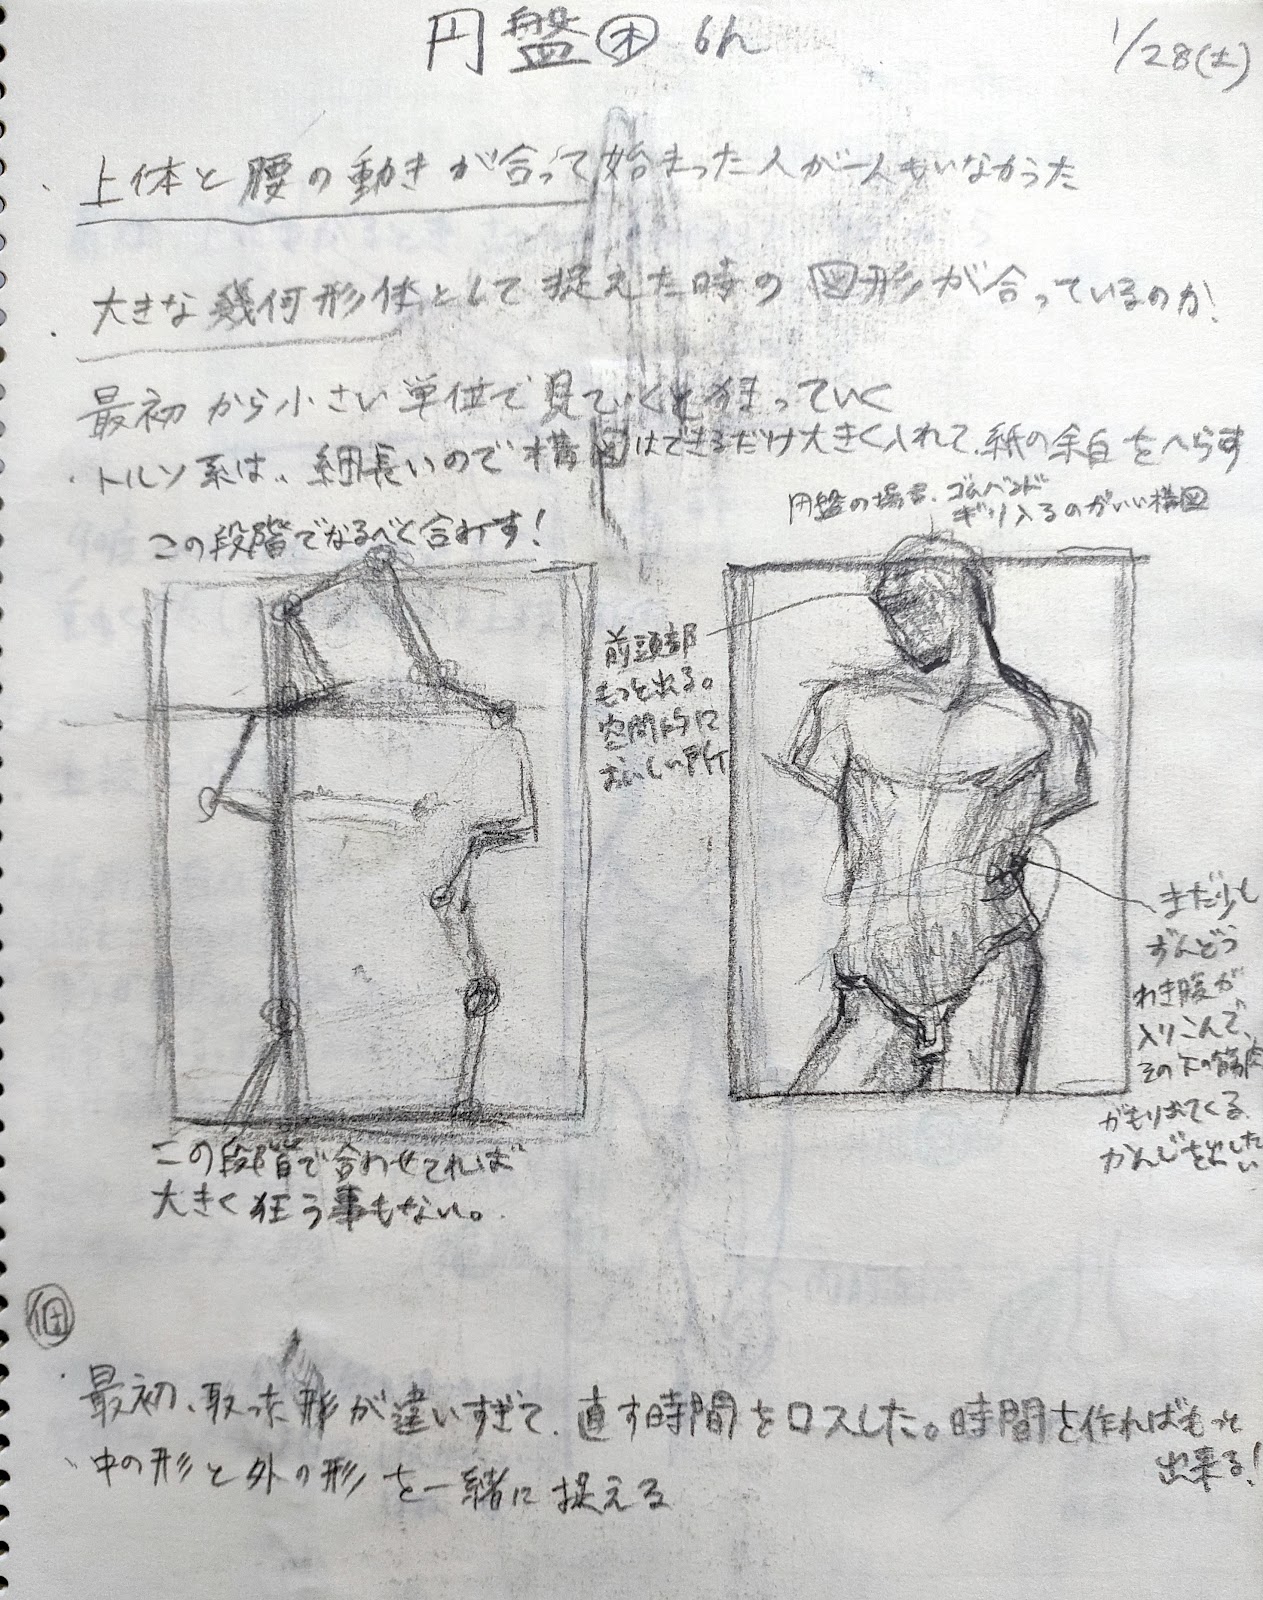 円盤 木 6h
1/28(土)
・上体と腰の動きが合って始まった人が一人もいなかった
・大きな幾何形体として捉えた時の図形が合っているのか!
最初から小さい単位で見ていくと狂っていく
・トルソ系は、細長いので構図はできるだけ大きく入れて、紙の余白をへらす
円盤の場合、ゴムバンド
ギリ入るのがいい構図
この段階でなるべく合わす!
前頭部
もっと出る。
空間的に
おいしい所
まだ少し
ずんどう
わき腹が
入りこんで、
その下の筋肉
がもり出てくる
かんじを出したい
この段階で合わせてれば
大きく狂う事もない。
個
・最初、取った形が違いすぎて、直す時間をロスした。時間を作ればもっと
出来る!
・中の形と外の形を一緒に捉える